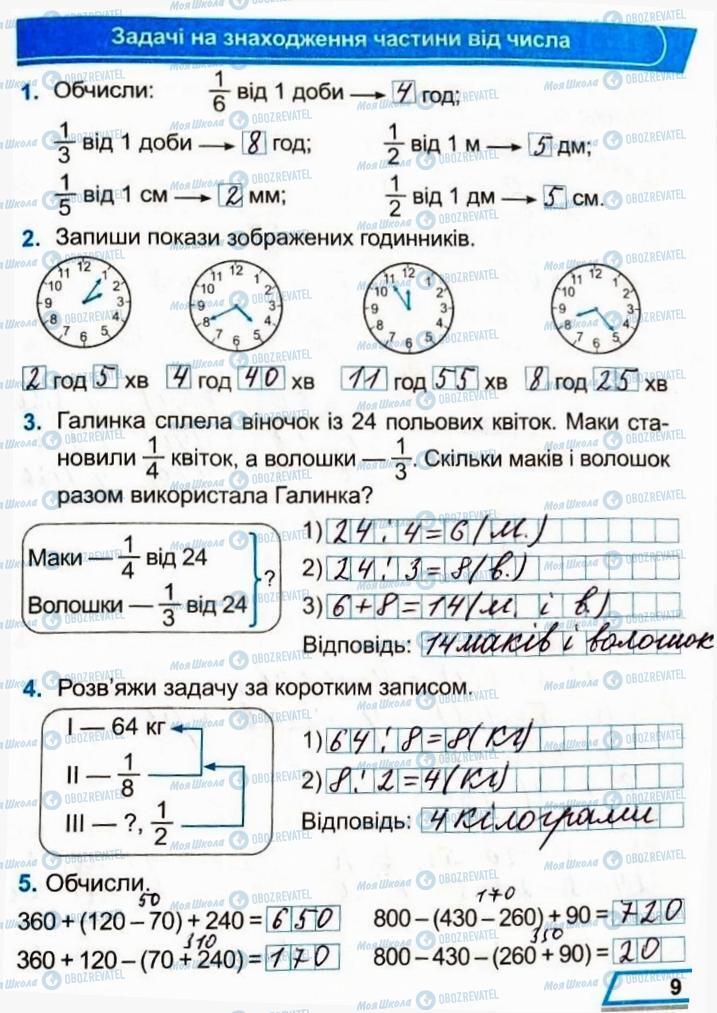 Задачі на знаходження частини від числа
1. Обчисли: 1/6 від 1 доби → 4 год;
1/3 від 1 доби → 8 год; 1/2 від 1 м → 5 дм;
1/5 від 1 см → 2 мм; 1/2 від 1 дм → 5 см.
2. Запиши покази зображених годинників.
2 год 5 хв 4 год 40 хв 11 год 55 хв 8 год 25 хв
3. Галинка сплела віночок із 24 польових квіток. Маки ста-
новили 1/4 квіток, а волошки — 1/3. Скільки маків і волошок
разом використала Галинка?
Маки — 1/4 від 24
Волошки — 1/3 від 24
?
1) 24 : 4 = 6 (м.)
2) 24 : 3 = 8 (в.)
3) 6 + 8 = 14 (м. і в.)
Відповідь: 14 маків і волошок
4. Розв'яжи задачу за коротким записом.
I — 64 кг
II — 1/8
III — ?, 1/2
1) 64 : 8 = 8 (кг)
2) 8 : 2 = 4 (кг)
Відповідь: 4 кілограми
5. Обчисли.
50 170
360 + (120 – 70) + 240 = 650 800 – (430 – 260) + 90 = 720
310 350
360 + 120 – (70 + 240) = 170 800 – 430 – (260 + 90) = 20
9
МояШкола OBOZREVATEL